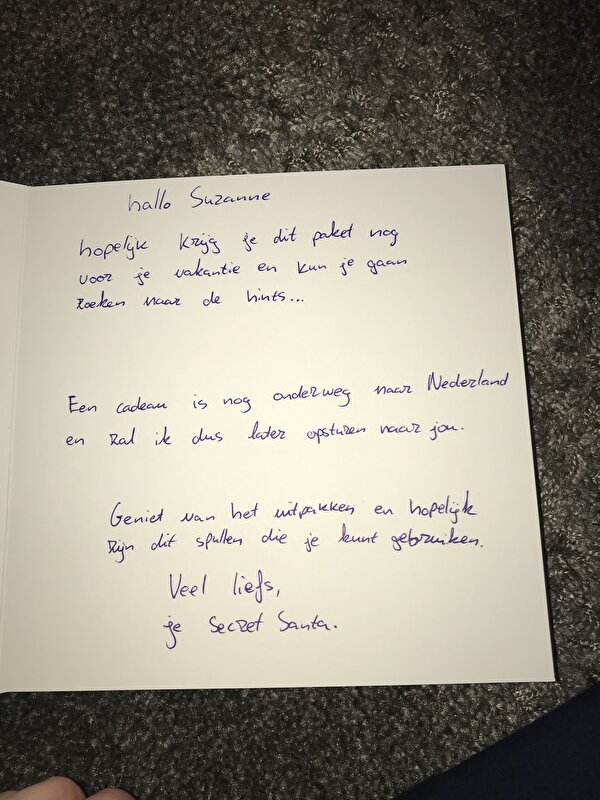 hallo Suzanne
hopelijk krijg je dit paket nog
voor je vakantie en kun je gaan
zoeken naar de hints...
Een cadeau is nog onderweg naar Nederland
en zal ik dus later opsturen naar jou.
Geniet van het uitpakken en hopelijk
zijn dit spullen die je kunt gebruiken.
Veel liefs,
je Secret Santa.